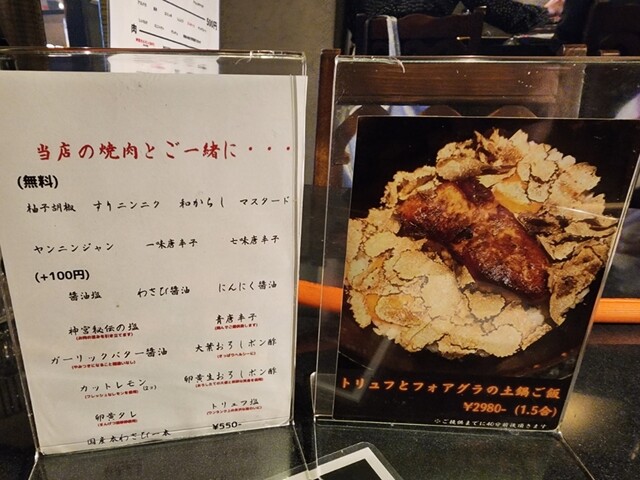 500円
肉
当店の焼肉とご一緒に・・・
(無料)
柚子胡椒 すりニンニク 和からし マスタード
ヤンニンジャン 一味唐辛子 七味唐辛子
(+100円)
醤油塩 わさび醤油 にんにく醤油
神宮秘伝の塩 青唐辛子
ガーリックバター醤油 大葉おろしポン酢
カットレモン 卵黄生おろしポン酢
卵黄タレ トリュフ塩
国産本わさび一本 ¥550-
トリュフとフォアグラの土鍋ご飯
¥2980- (1.5合)
◇ご提供までに40分前後頂きます